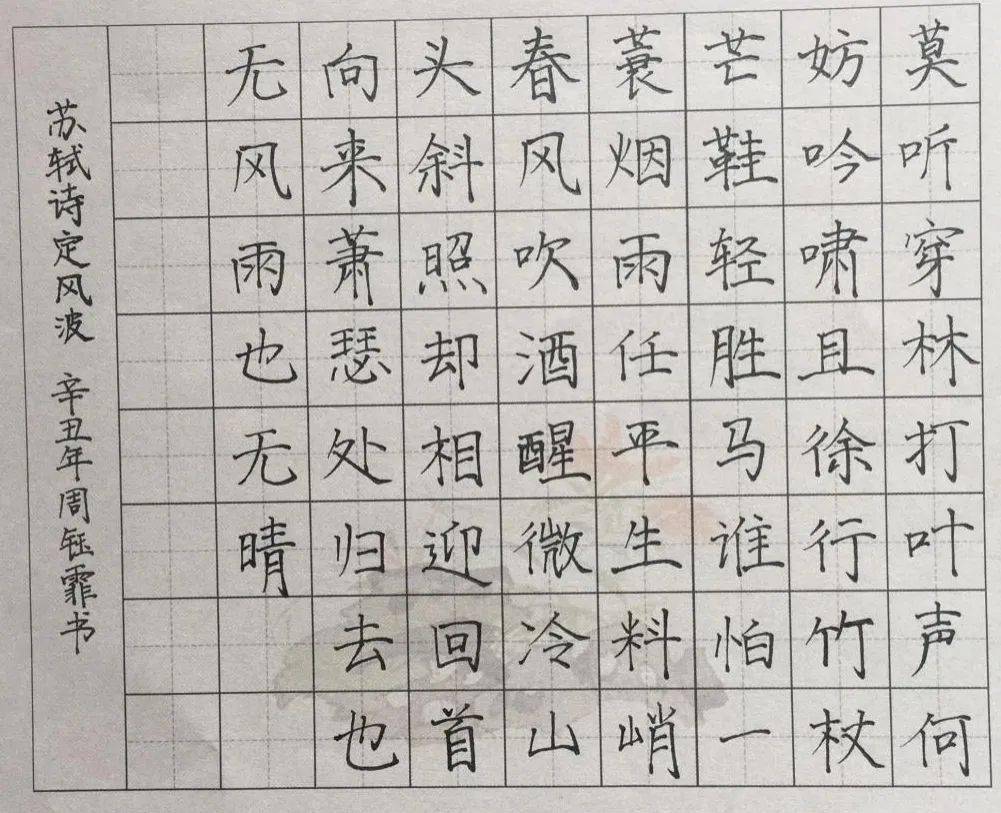 莫听穿林打叶声何
妨吟啸且徐行竹杖
芒鞋轻胜马谁怕一
蓑烟雨任平生料峭
春风吹酒醒微冷山
头斜照却相迎回首
向来萧瑟处归去也
无风雨也无晴
苏轼诗定风波 辛丑年周钰霏书